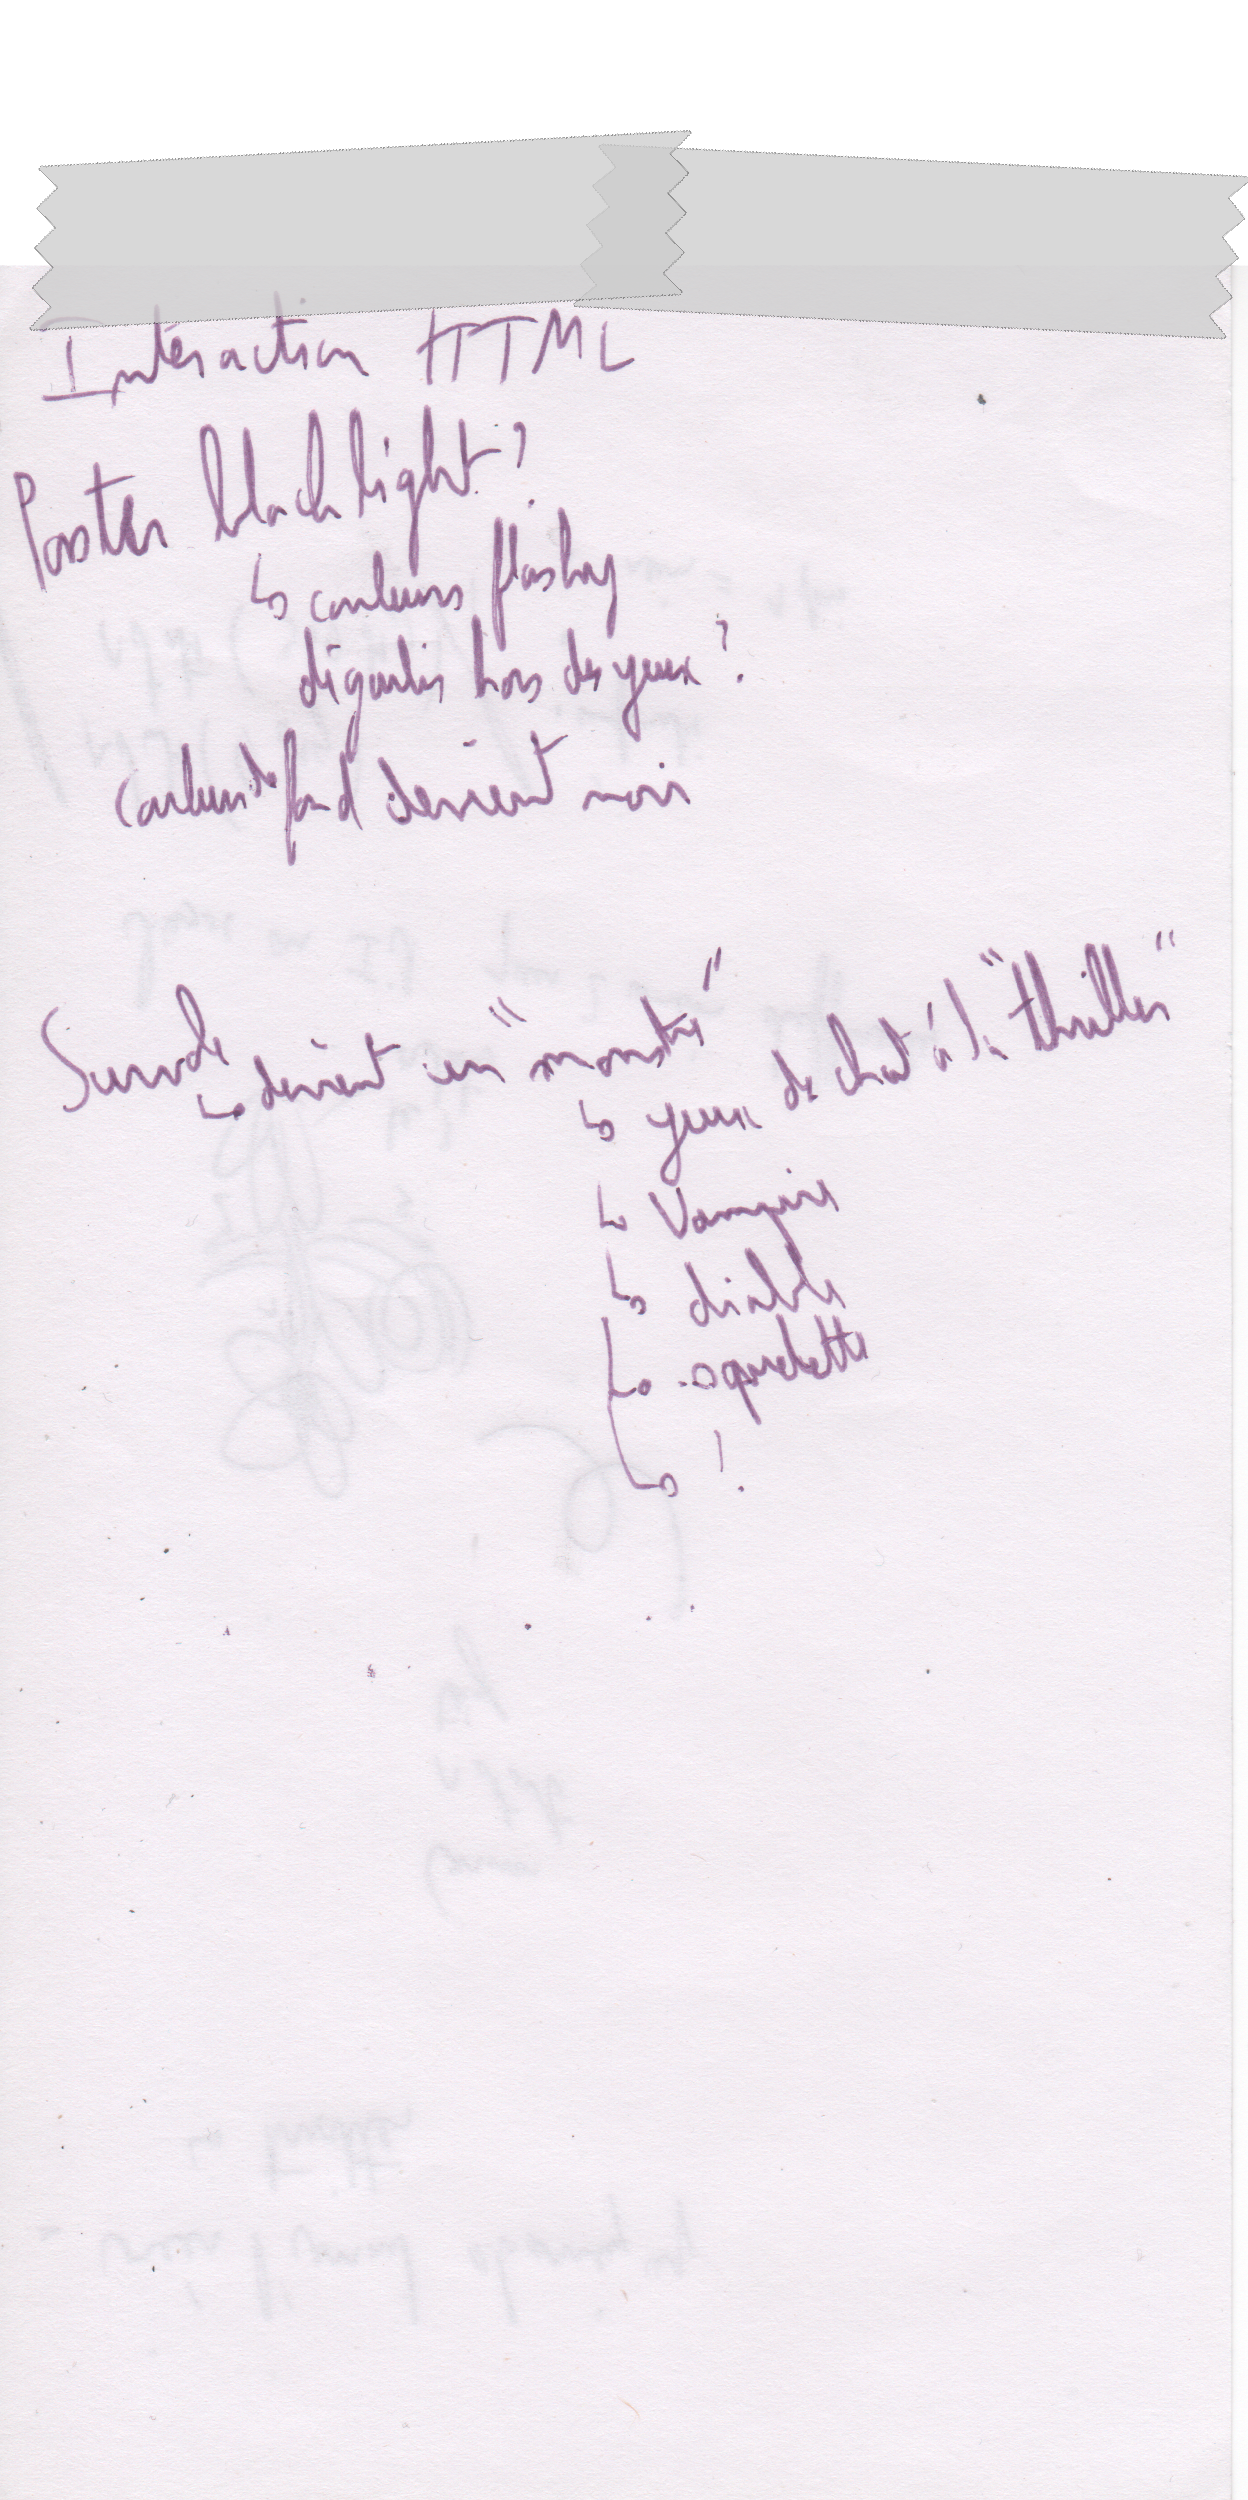 Intéraction HTML
Poster blacklight ?
↳ couleurs flashy
dégoulis hors des yeux ?
Couleur de fond devient noir
Survole
↳ devient un "monstre"
↳ yeux de chat à la "thriller"
↳ Vampire
↳ diable
↳ squelette
↳ !